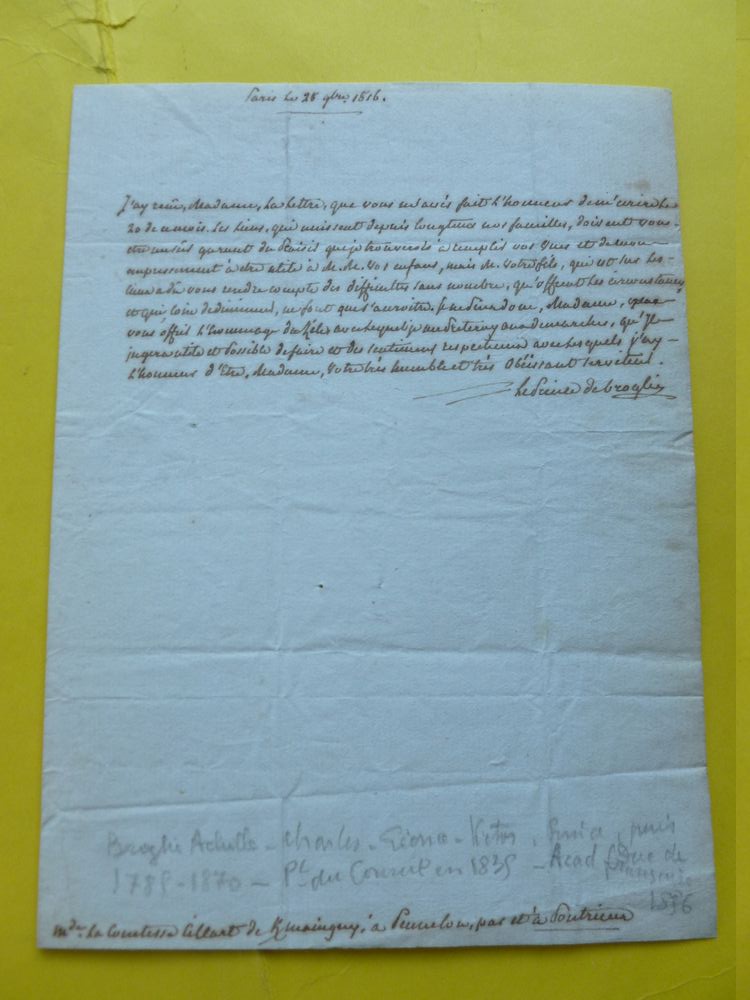 Paris le 28 9bre 1816.
J'ay reçu, Madame, la Lettre, que vous m'avés fait l'honneur de m'écrire le
20 de ce mois. Les Liens, qui unissent depuis longtems nos familles, doivent vous
être un sûr garant du Plaisir que je trouverois à remplir vos vues et de mon
empressement à être utile à M.M. Vos enfans, mais M. Votre fils, qui est sur les
lieux a dû vous rendre compte des difficultés sans nombre, qu'offrent les circonstances
et qui, loin de diminuer, ne font que s'accroître. Je ne puis donc, Madame, que
vous offrir l'hommage du Zèle avec lequel je me prêteray aux démarches, qu'Il
jugera utile et Possible de faire et des sentimens respectueux avec lesquels j'ay
l'honneur d'Etre, Madame, Votre très humble et très Obéissant serviteur.
Le Prince de Broglie
Broglie Achille - Charles - Léonce - Victor, Prince, puis
1785-1870 - Pt du Conseil en 1835 - Acad française Duc de
1876
Mde la Comtesse Cillart de Kmainguy, à Pennelou, par et à Pontrieux